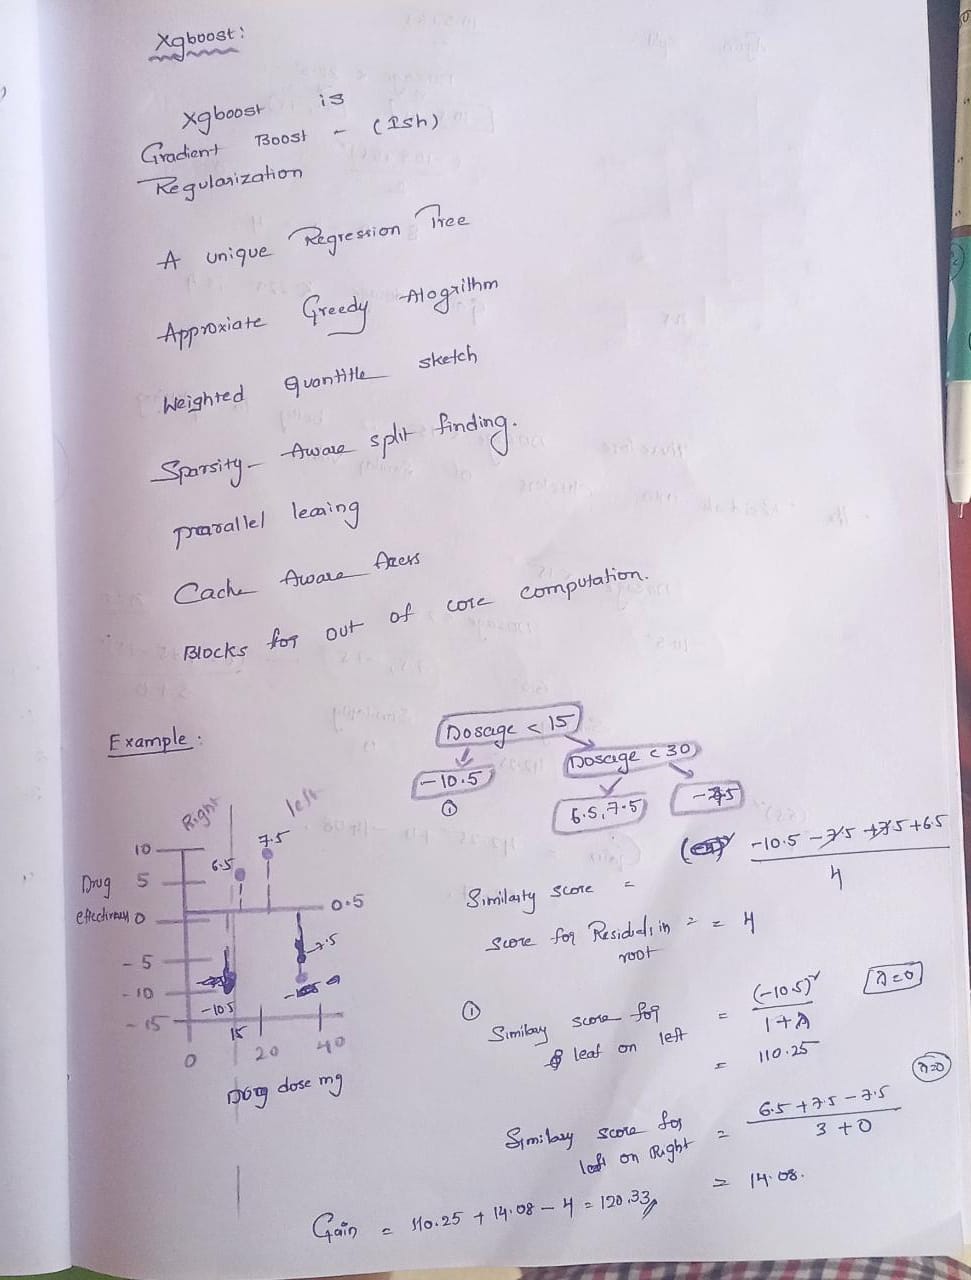 Xgboost:
Xgboost is
Gradient Boost - (Ish)
Regularization
A unique Regression Tree
Approxiate Greedy Alogrithm
Weighted quantitle sketch
Sparsity - Aware split finding.
parallel learing
Cache Aware Acers
Blocks for out of core computation.
Example:
Dosage < 15
-10.5
①
Dosage < 30
6.5, 7.5
-7.5
Right
left
10
5
0
-5
-10
-15
Drug
effectiveness
6.5
7.5
0.5
-7.5
-10.5
15
0
20
40
Drug dose mg
Similarty score = -10.5 -7.5 +7.5 +6.5 / 4
score for Residuals in root = = 4
① Similary score for leaf on left = (-10.5)² / 1+λ
λ=0
= 110.25
Similary score for left on Right = 6.5 + 7.5 - 7.5 / 3 + 0
λ=0
= 14.08.
Gain = 110.25 + 14.08 - 4 = 120.33